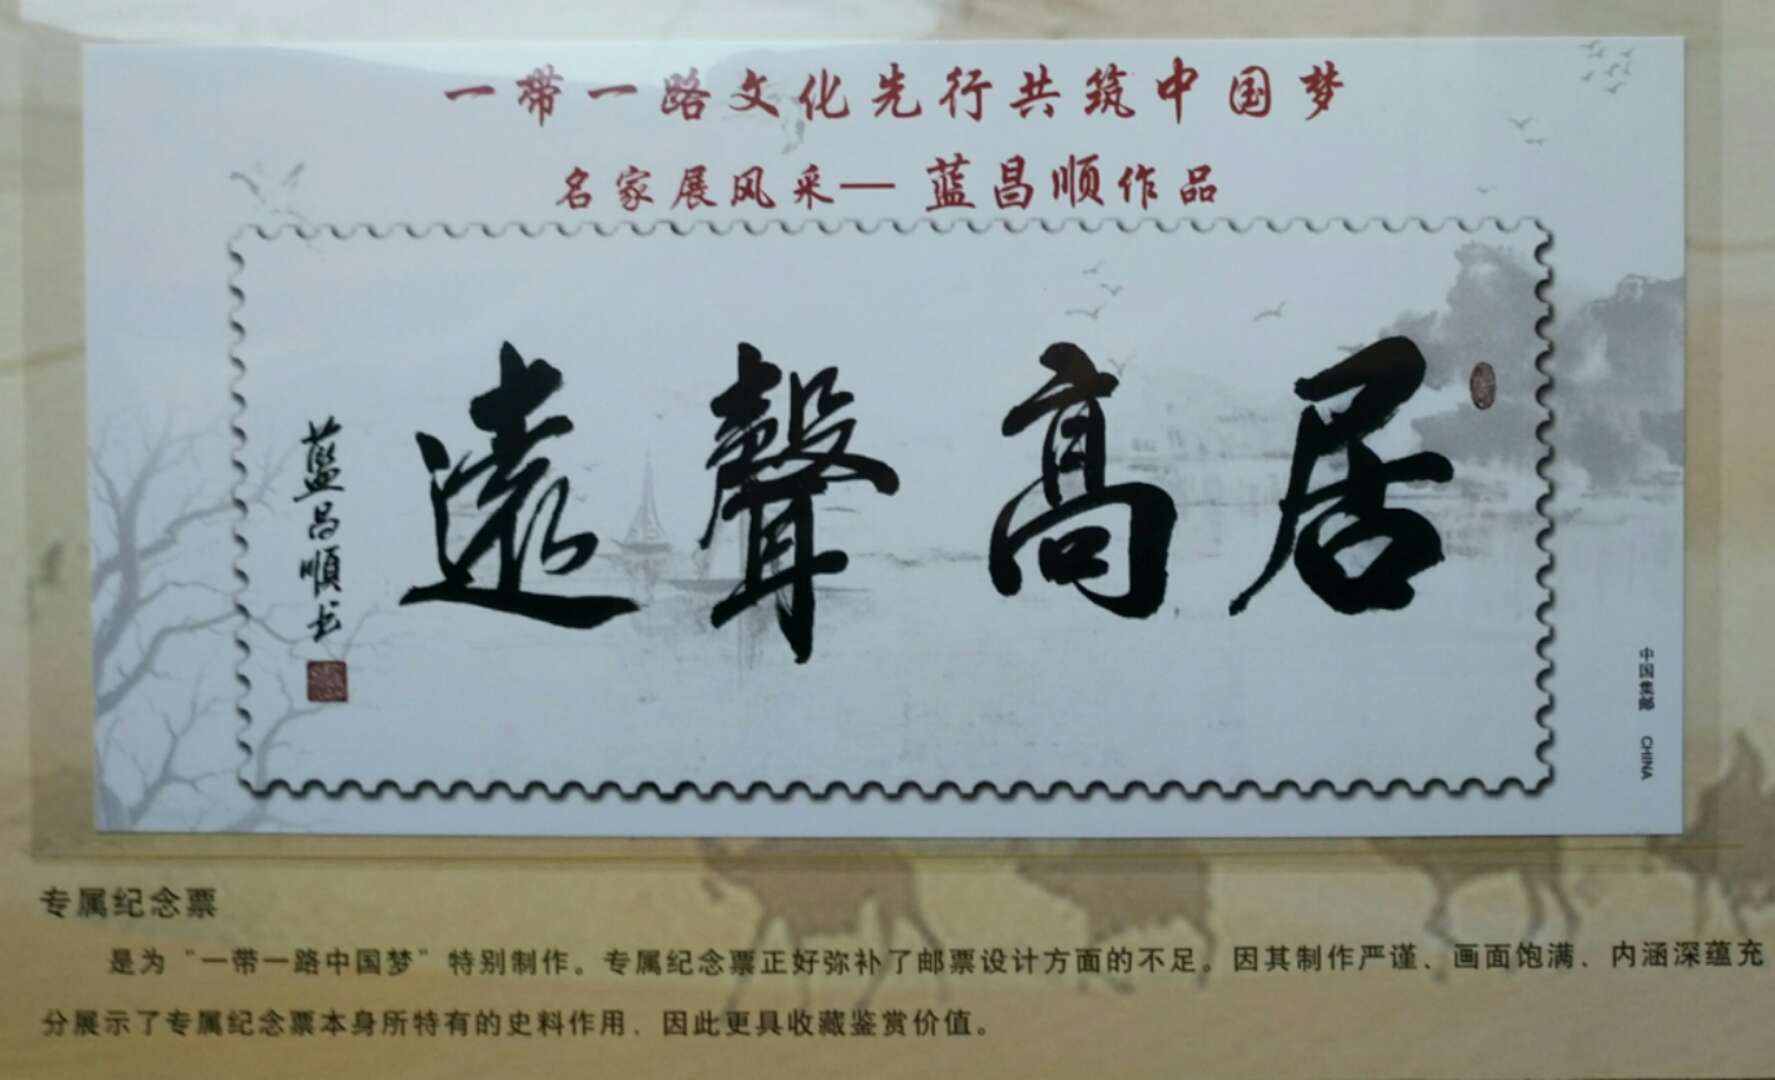 一带一路文化先行共筑中国梦
名家展风采— 蓝昌顺作品
居高聲遠
藍昌順书
中国集邮 CHINA
专属纪念票
是为“一带一路中国梦”特别制作。专属纪念票正好弥补了邮票设计方面的不足。因其制作严谨、画面饱满、内涵深蕴充
分展示了专属纪念票本身所特有的史料作用、因此更具收藏鉴赏价值。